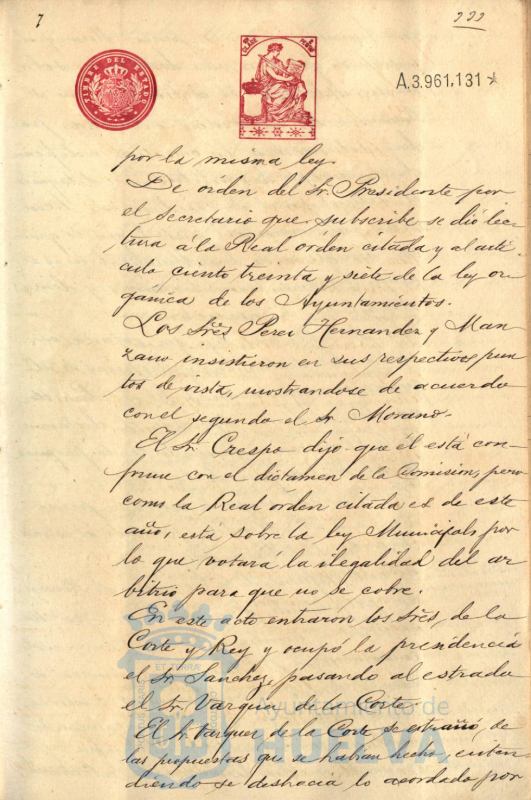 7
222
TIMBRE DEL ESTADO
A.3.961,131 *
por la misma ley.
De órden del Sr. Presidente por
el secretario que subscribe se dió lec-
tura á la Real órden citada y al artí
culo ciento treinta y siete de la ley or-
gánica de los Ayuntamientos.
Los Sres Perez Hernandez y Man-
zano insistieron en sus respectivos pun
tos de vista, mostrandose de acuerdo
con el segundo el Sr. Morano.
El Sr. Crespo dijo que él está con-
forme con el dictamen de la Comision, pero
como la Real órden citada es de este
año, está sobre la ley Municipal, por
lo que votará la ilegalidad del ar
bitrio para que no se cobre.
En este acto entraron los Sres, de la
Corte y Rey y ocupó la presidencia
el Sr. Sanchez, pasando al estrado
el Sr. Vazquez de la Corte.
El Sr. Vazquez de la Corte se estrañó, de
las propuestas que se habian hecho, enten
diendo se deshacia lo acordado por
Ayuntamiento de
HUELVA